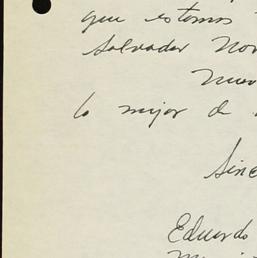 que estamos
Salvador Nov
Nuev
lo mejor de
Since
Eduardo